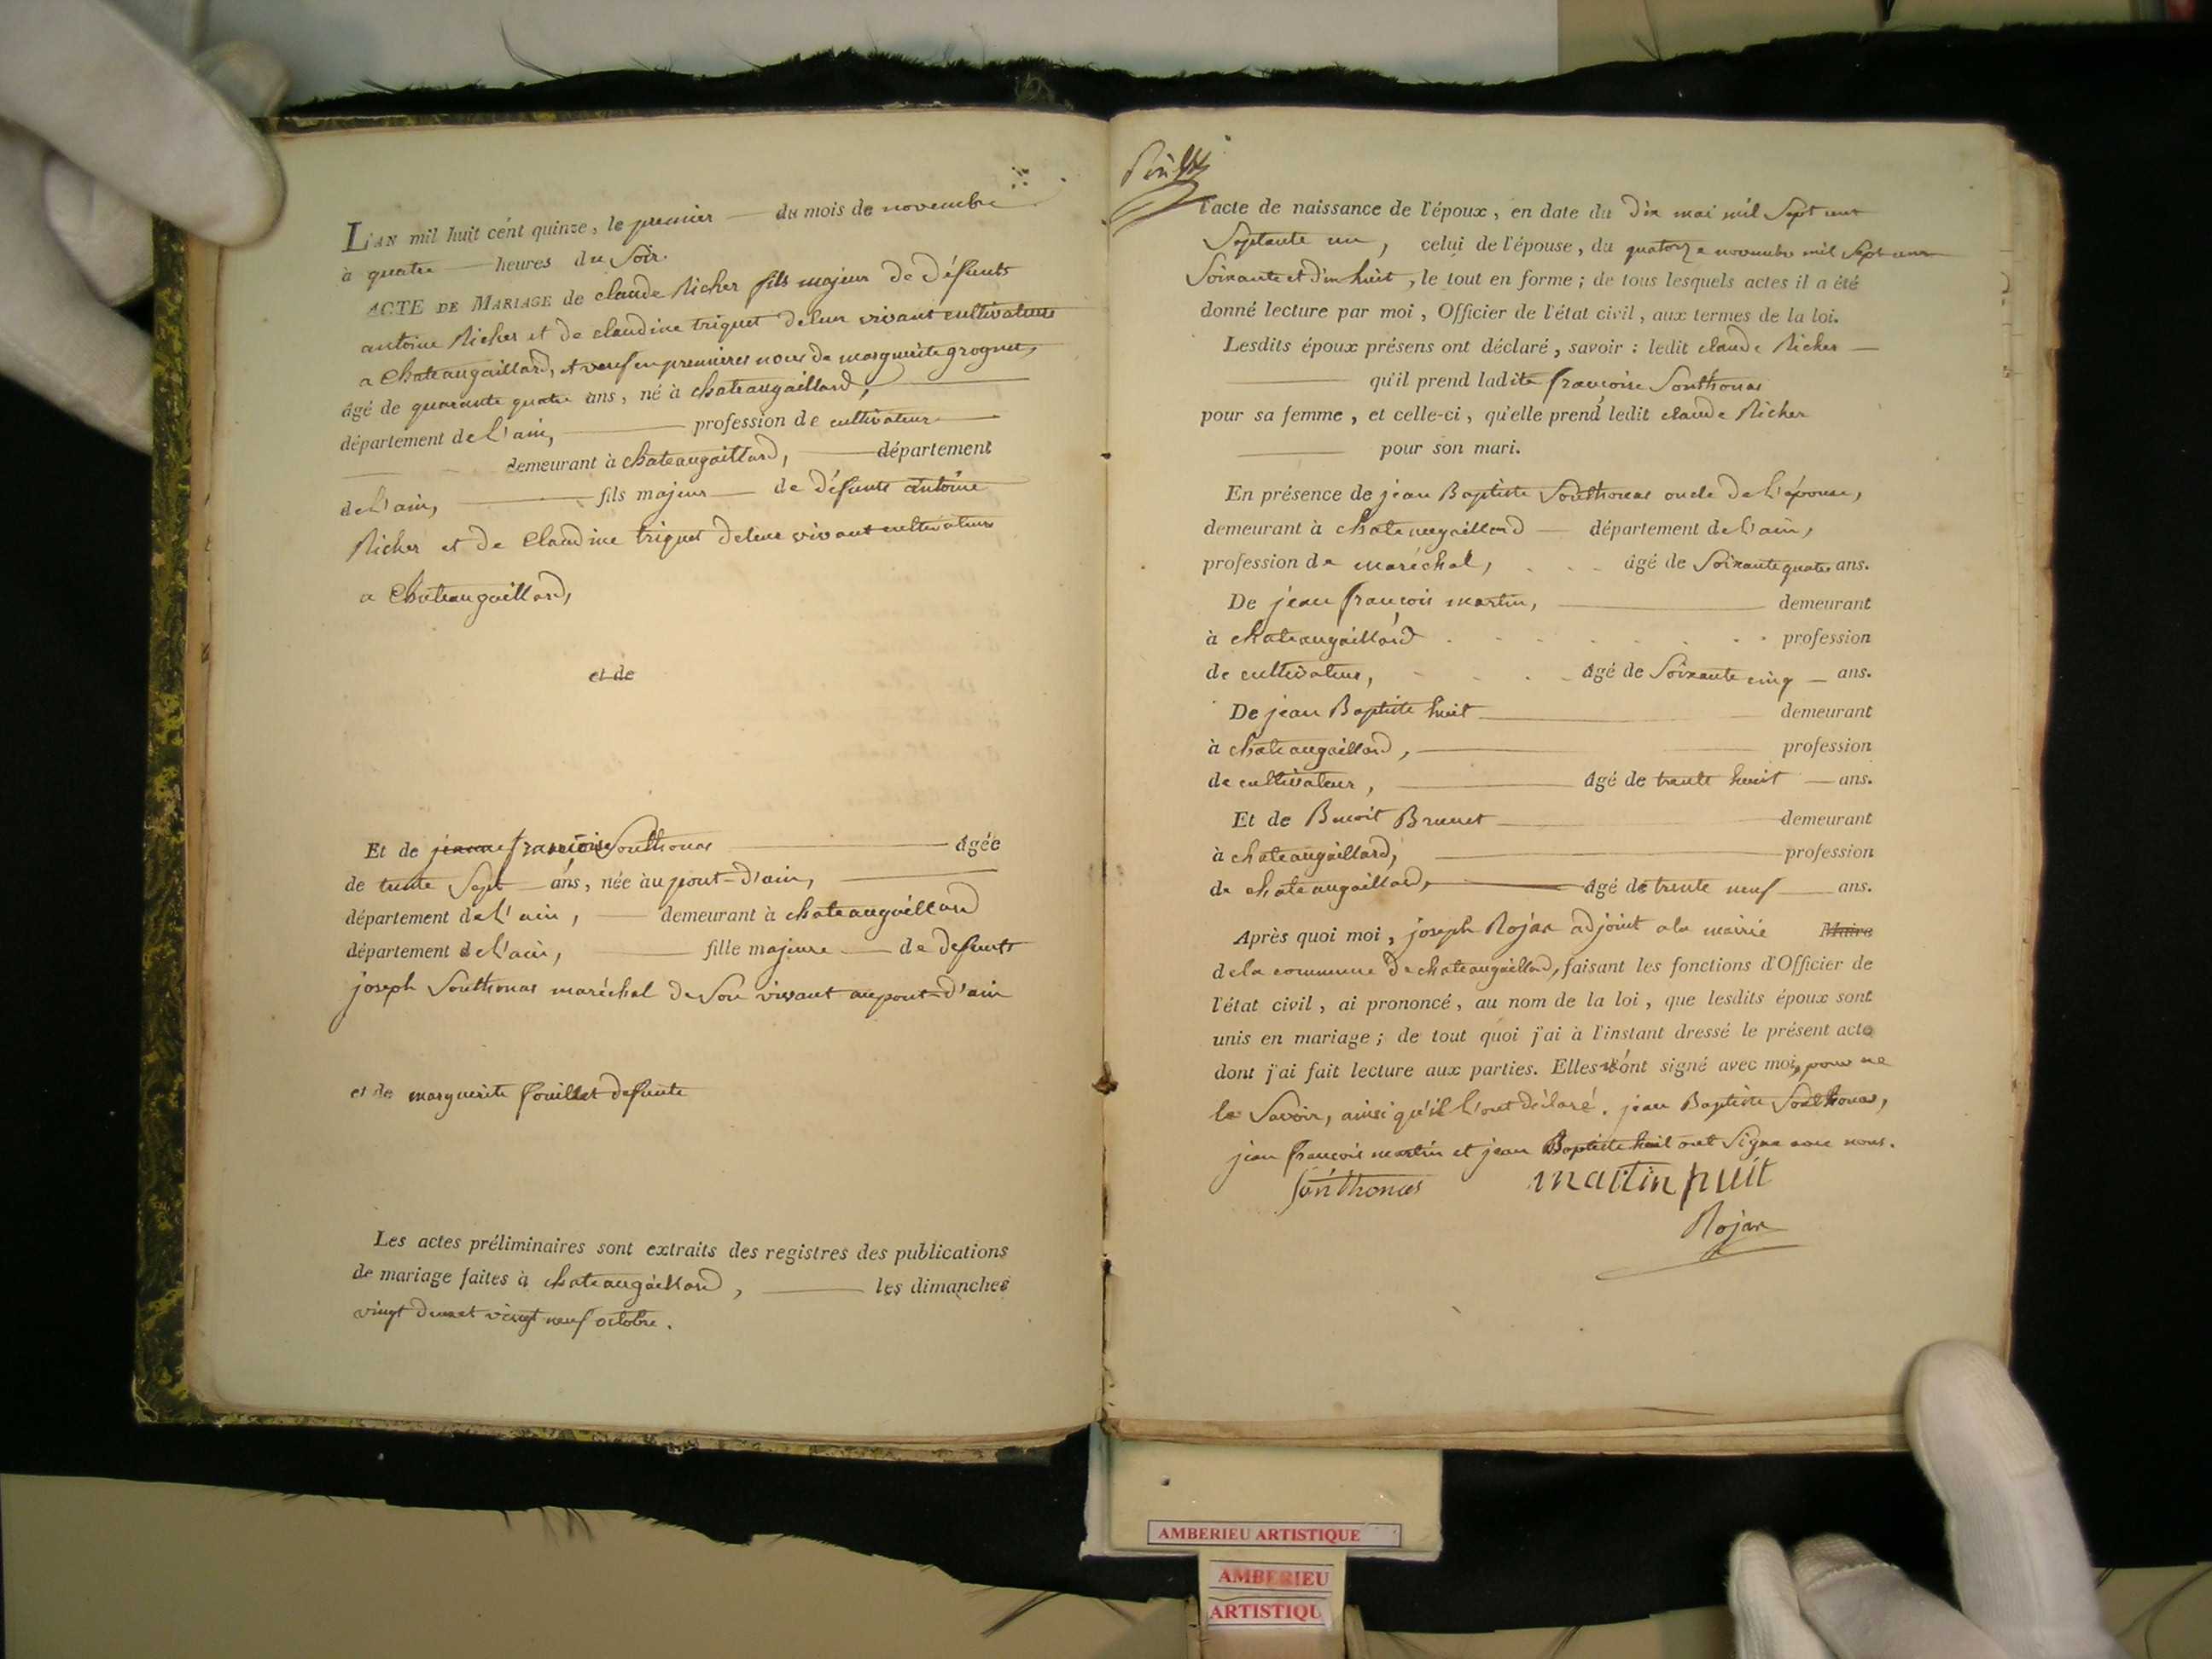 L'AN mil huit cent quinze, le premier — du mois de novembre
à quatre — heures du Soir.
ACTE DE MARIAGE de claude Richer fils majeur de défunts
antoine Richer et de claudine triquet deleur vivant cultivateurs
a Chateaugaillard, et veuf en premieres noces de marguerite grognet,
âgé de quarante quatre ans, né à chateaugaillard,
département de l'ain, — profession de cultivateur
demeurant à chateaugaillard, — département
de l'ain, — fils majeur — de défunts antoine
Richer et de Claudine triquet deleur vivant cultivateurs
a Chateaugaillard,
et de
Et de jeanne françoise Southonas — âgée
de trente Sept — ans, née au pont-d'ain,
département de l'ain, — demeurant à chateaugaillard
département de l'ain, — fille majeure — de defunts
joseph Southonas maréchal de Son vivant au pont-d'ain
et de marguerite fouillet defunte
Les actes préliminaires sont extraits des registres des publications
de mariage faites à chateaugaillard, — les dimanches
vingt deux et vingt neuf octobre.
l'acte de naissance de l'époux, en date du dix mai mil Sept cent
Soptante un, celui de l'épouse, du quatorze novembre mil Sept cent
Soixante et dix huit, le tout en forme; de tous lesquels actes il a été
donné lecture par moi, Officier de l'état civil, aux termes de la loi.
Lesdits époux présens ont déclaré, savoir: ledit claude Richer —
qu'il prend ladite françoise Southonas
pour sa femme, et celle-ci, qu'elle prend ledit claude Richer
pour son mari.
En présence de jean Baptiste Southonas oncle de l'épouse,
demeurant à chateaugaillard — département de l'ain,
profession de maréchal, âgé de Soixante quatre ans.
De jean françois martin, — demeurant
à chateaugaillard profession
de cultivateur, âgé de Soixante cinq — ans.
De jean Baptiste huit — demeurant
à chateaugaillard, — profession
de cultivateur, — âgé de trente huit — ans.
Et de Benoit Brunet — demeurant
à chateaugaillard, — profession
de chateaugaillard, — âgé de trente neuf — ans.
Après quoi moi, joseph Rojat adjoint a la mairie Maire
de la commune de chateaugaillard, faisant les fonctions d'Officier de
l'état civil, ai prononcé, au nom de la loi, que lesdits époux sont
unis en mariage; de tout quoi j'ai à l'instant dressé le présent acte
dont j'ai fait lecture aux parties. Elles n'ont signé avec moi, pour ne
le Savoir, ainsi qu'il l'ont déclaré. jean Baptiste Southonas,
jean françois martin et jean Baptiste huit ont Signé avec nous.
Southonas martin huit
Rojat
AMBERIEU ARTISTIQUE
AMBERIEU
ARTISTIQU